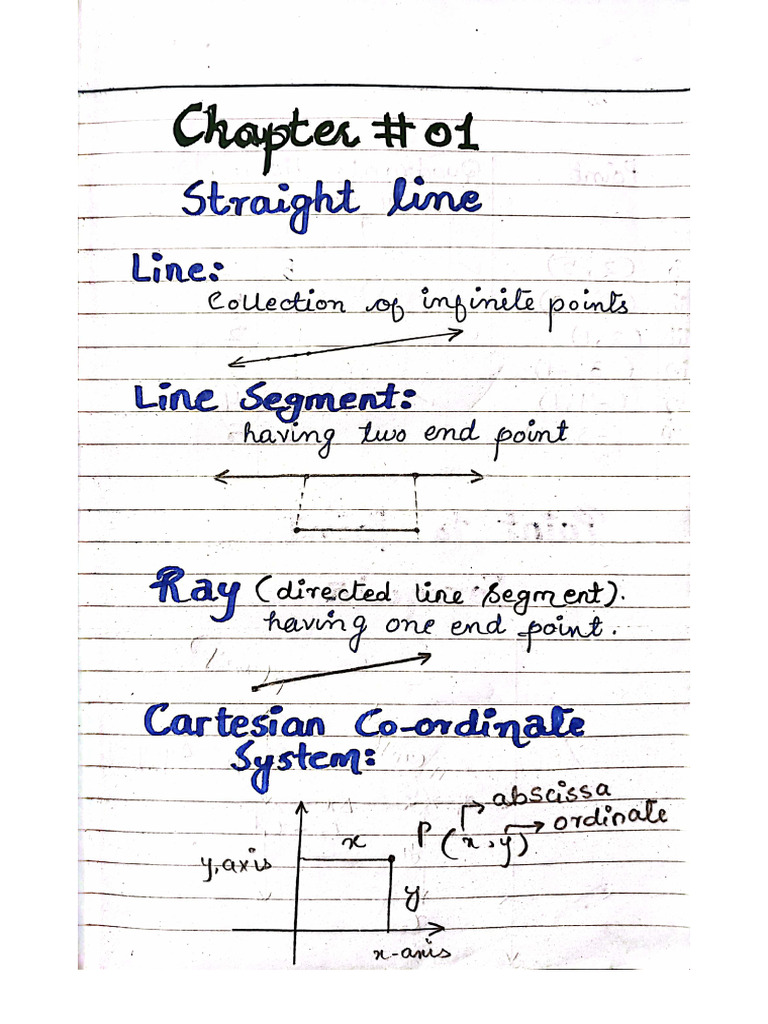 Chapter # 01
Straight line
Line:
Collection of infinite points
Line Segment:
having two end point
Ray (directed line segment).
having one end point.
Cartesian Co-ordinate
System:
abscissa
ordinate
x
P (x, y)
y,axis
y
x-axis